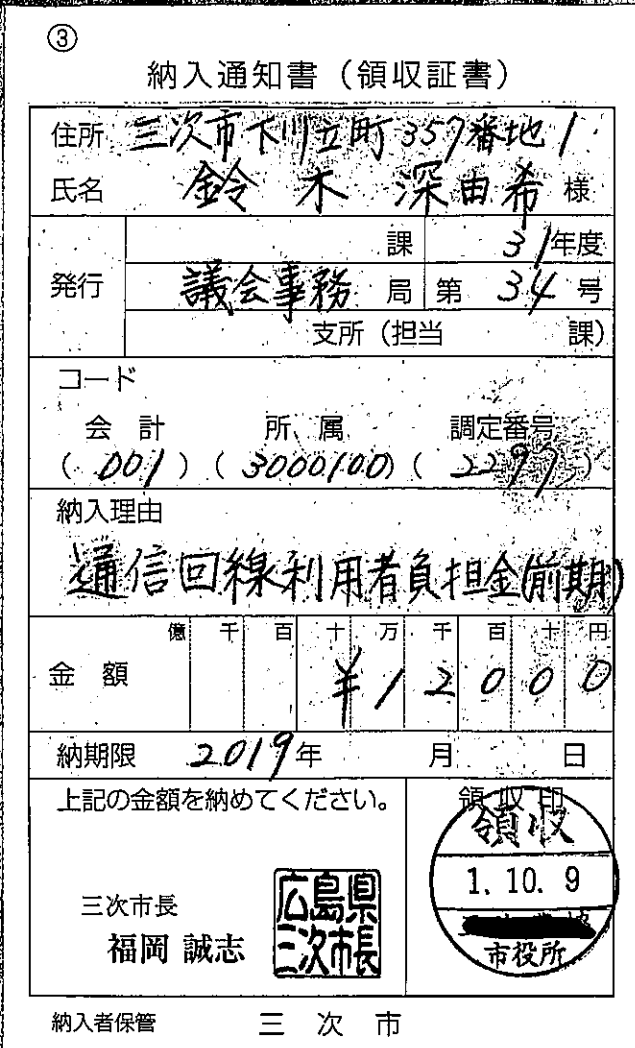 ③
納入通知書（領収証書）
住所 三次市下川立町357番地1
氏名 鈴木 深由希 様
発行
課 31年度
議会事務 局 第 34 号
支所（担当 課）
コード
会計 所属 調定番号
（001）（3000100）（2297）
納入理由
通信回線利用者負担金(前期)
億 千 百 十 万 千 百 十 円
金額 ¥12000
納期限 2019年 月 日
上記の金額を納めてください。
領収印
領収
1. 10. 9
市役所
三次市長
福岡 誠志
広島県
三次市長
納入者保管 三次市